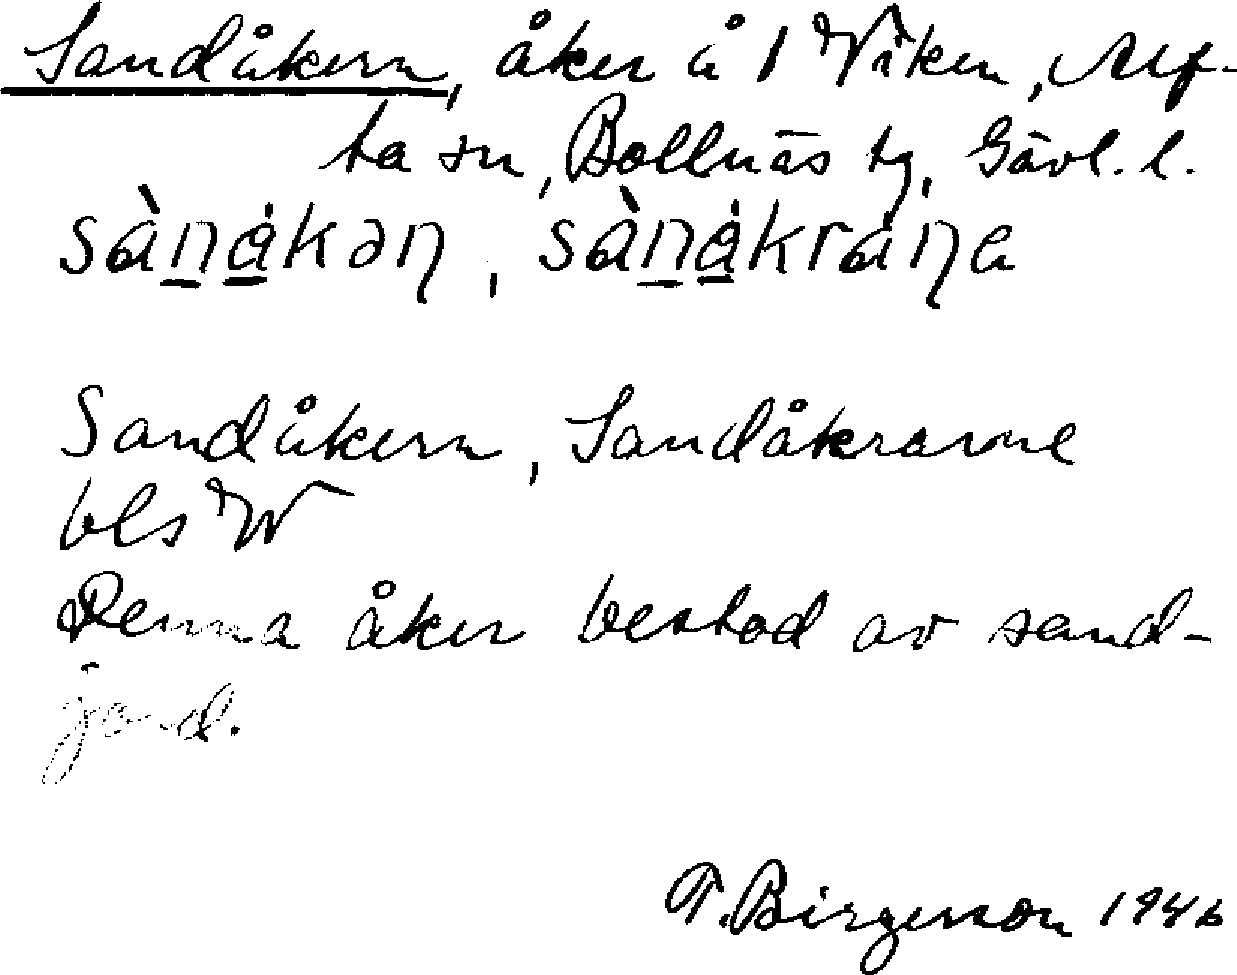 Sandåkern, åker å 1 Viken, Alf-
ta sn, Bollnäs tg, Gävl. l.
sànåkəɳ, sànåkråɳa
Sandåkern, Sandåkrarne
bls W
Denna åker bestod av sand-
jord.
T. Birgerson 1946